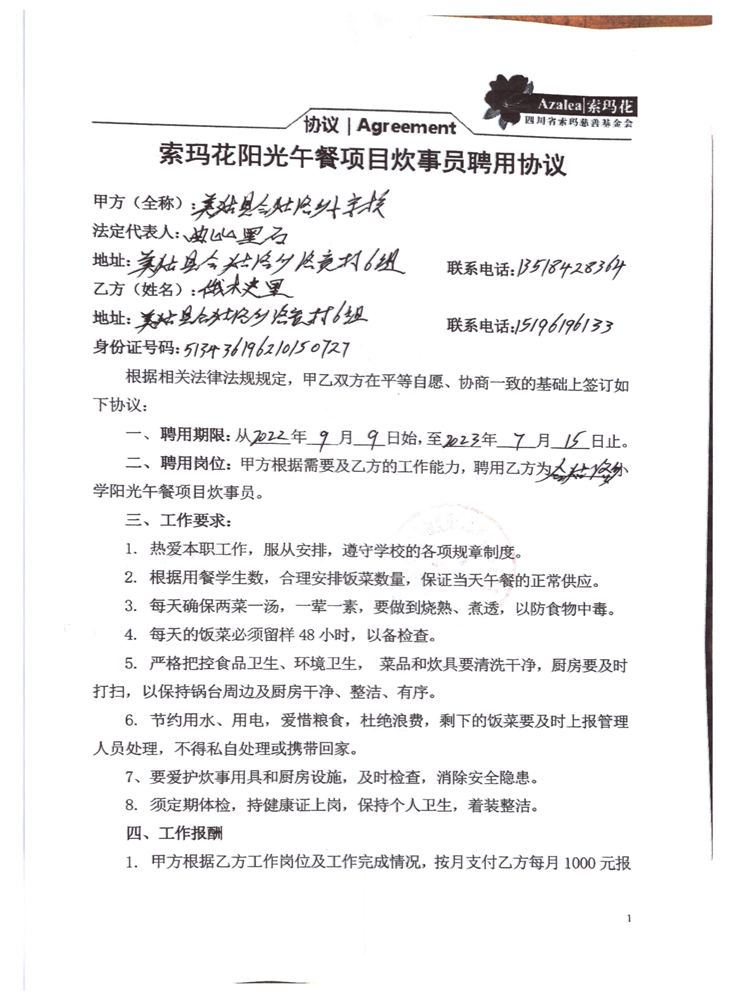 Azalea|索玛花
四川省索玛慈善基金会
协议 | Agreement
索玛花阳光午餐项目炊事员聘用协议
甲方（全称）：美姑县
法定代表人：
地址：美姑县 6组 联系电话：13518428364
乙方（姓名）：俄木史里
地址：美姑县 村6组 联系电话：15196196133
身份证号码：513436196210150727
根据相关法律法规规定，甲乙双方在平等自愿、协商一致的基础上签订如
下协议：
一、聘用期限：从2022年 9 月 9 日始，至2023年 7 月 15 日止。
二、聘用岗位：甲方根据需要及乙方的工作能力，聘用乙方为 小
学阳光午餐项目炊事员。
三、工作要求：
1. 热爱本职工作，服从安排，遵守学校的各项规章制度。
2. 根据用餐学生数，合理安排饭菜数量，保证当天午餐的正常供应。
3. 每天确保两菜一汤，一荤一素，要做到烧熟、煮透，以防食物中毒。
4. 每天的饭菜必须留样 48 小时，以备检查。
5. 严格把控食品卫生、环境卫生， 菜品和炊具要清洗干净，厨房要及时
打扫，以保持锅台周边及厨房干净、整洁、有序。
6. 节约用水、用电，爱惜粮食，杜绝浪费，剩下的饭菜要及时上报管理
人员处理，不得私自处理或携带回家。
7、要爱护炊事用具和厨房设施，及时检查，消除安全隐患。
8. 须定期体检，持健康证上岗，保持个人卫生，着装整洁。
四、工作报酬
1. 甲方根据乙方工作岗位及工作完成情况，按月支付乙方每月 1000 元报
1